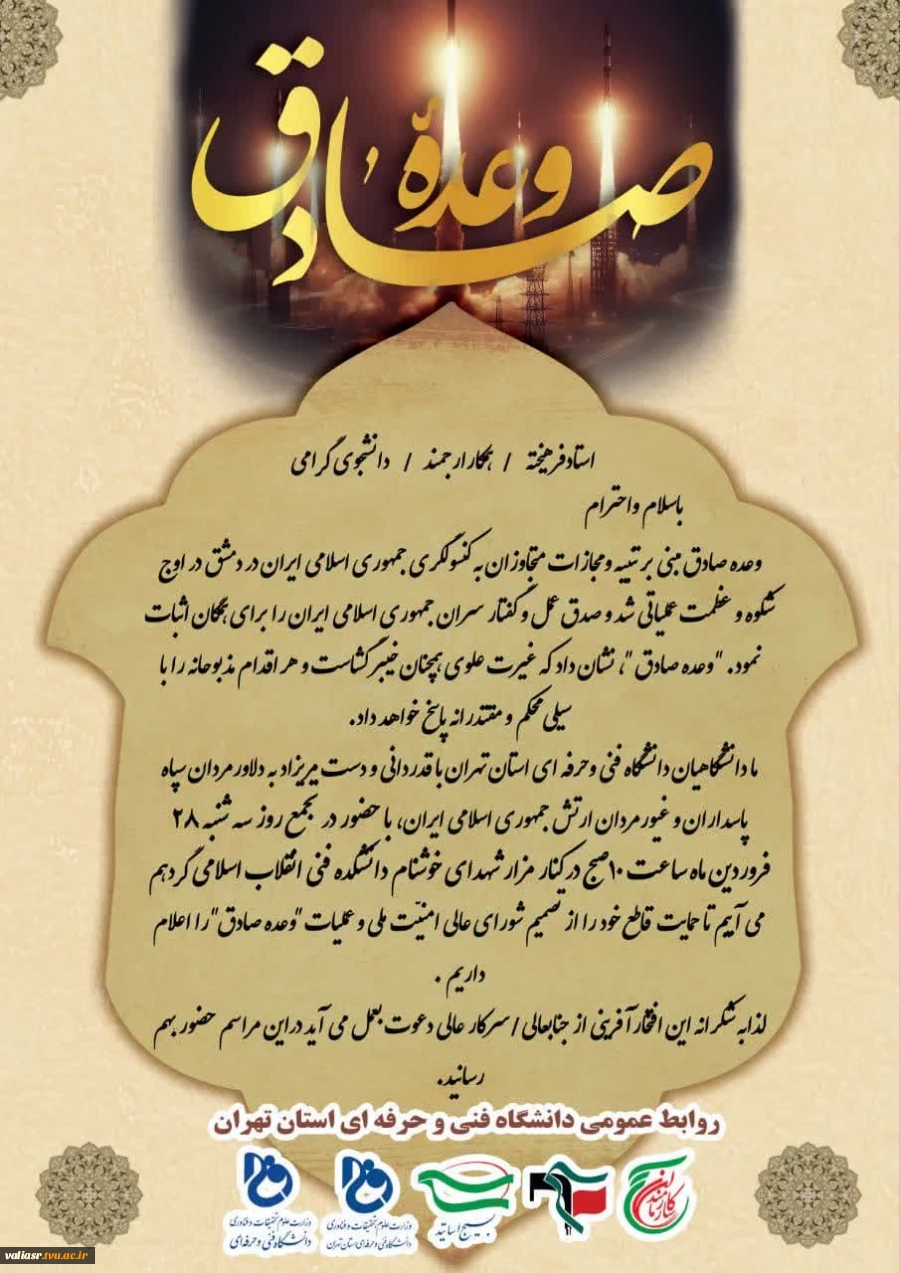 وعده صادق
استاد فرهیخته / همکار ارجمند / دانشجوی گرامی
باسلام واحترام
وعده صادق مبنی بر تنبیه و مجازات متجاوزان به کنسولگری جمهوری اسلامی ایران در دمشق در اوج
شکوه و عظمت عملیاتی شد و صدق عمل و گفتار سران جمهوری اسلامی ایران را برای همگان اثبات
نمود. "وعده صادق"، نشان داد که غیرت علوی همچنان خیبر گشاست و هر اقدام مذبوحانه را با
سیلی محکم و مقتدرانه پاسخ خواهد داد.
ما دانشگاهیان دانشگاه فنی وحرفه ای استان تهران با قدردانی و دست مریزاد به دلاورمردان سپاه
پاسداران و غیور مردان ارتش جمهوری اسلامی ایران، با حضور در تجمع روز سه شنبه ۲۸
فروردین ماه ساعت ۱۰صبح در کنار مزار شهدای خوشنام دانشکده فنی انقلاب اسلامی گردهم
می آییم تا حمایت قاطع خود را از تصمیم شورای عالی امنیّت ملی و عملیات "وعده صادق" را اعلام
داریم .
لذا به شکرانه این افتخارآفرینی از جنابعالی / سرکار عالی دعوت بعمل می آید دراین مراسم حضور بهم
رسانید.
روابط عمومی دانشگاه فنی و حرفه ای استان تهران
وزارت علوم تحقیقات و فناوری
دانشگاه فنی و حرفه‌ای
وزارت علوم تحقیقات و فناوری
دانشگاه فنی و حرفه‌ای استان تهران
بسیج اساتید
valiasr.tvu.ac.ir